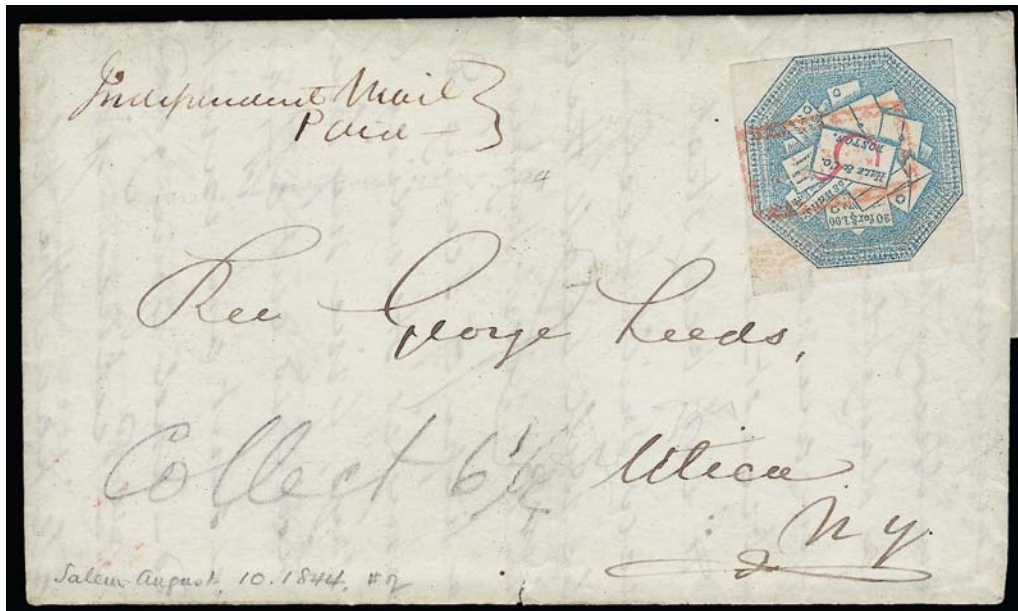 Independent Mail
Paid
HALE & CO.
BOSTON.
20 for $1.00
Rev George Leeds,
Collect 6¼
Utica
N Y.
Salem August 10. 1844